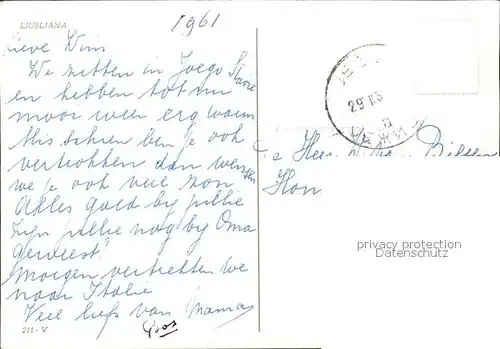 LJUBLJANA
1961
Lieve Wim
We zitten in Joego Slavie
en hebben tot nu
moor weer erg warm
Misschien ben je ook
vertrokken dan wensen
we je ook veel zon
Alles goed by jullie
Zyn jullie nog by Oma
geweest?
Morgen vertrekken we
naar Italie
Veel liefs van Mama
211-V
29
Heer
privacy protection
Datenschutz